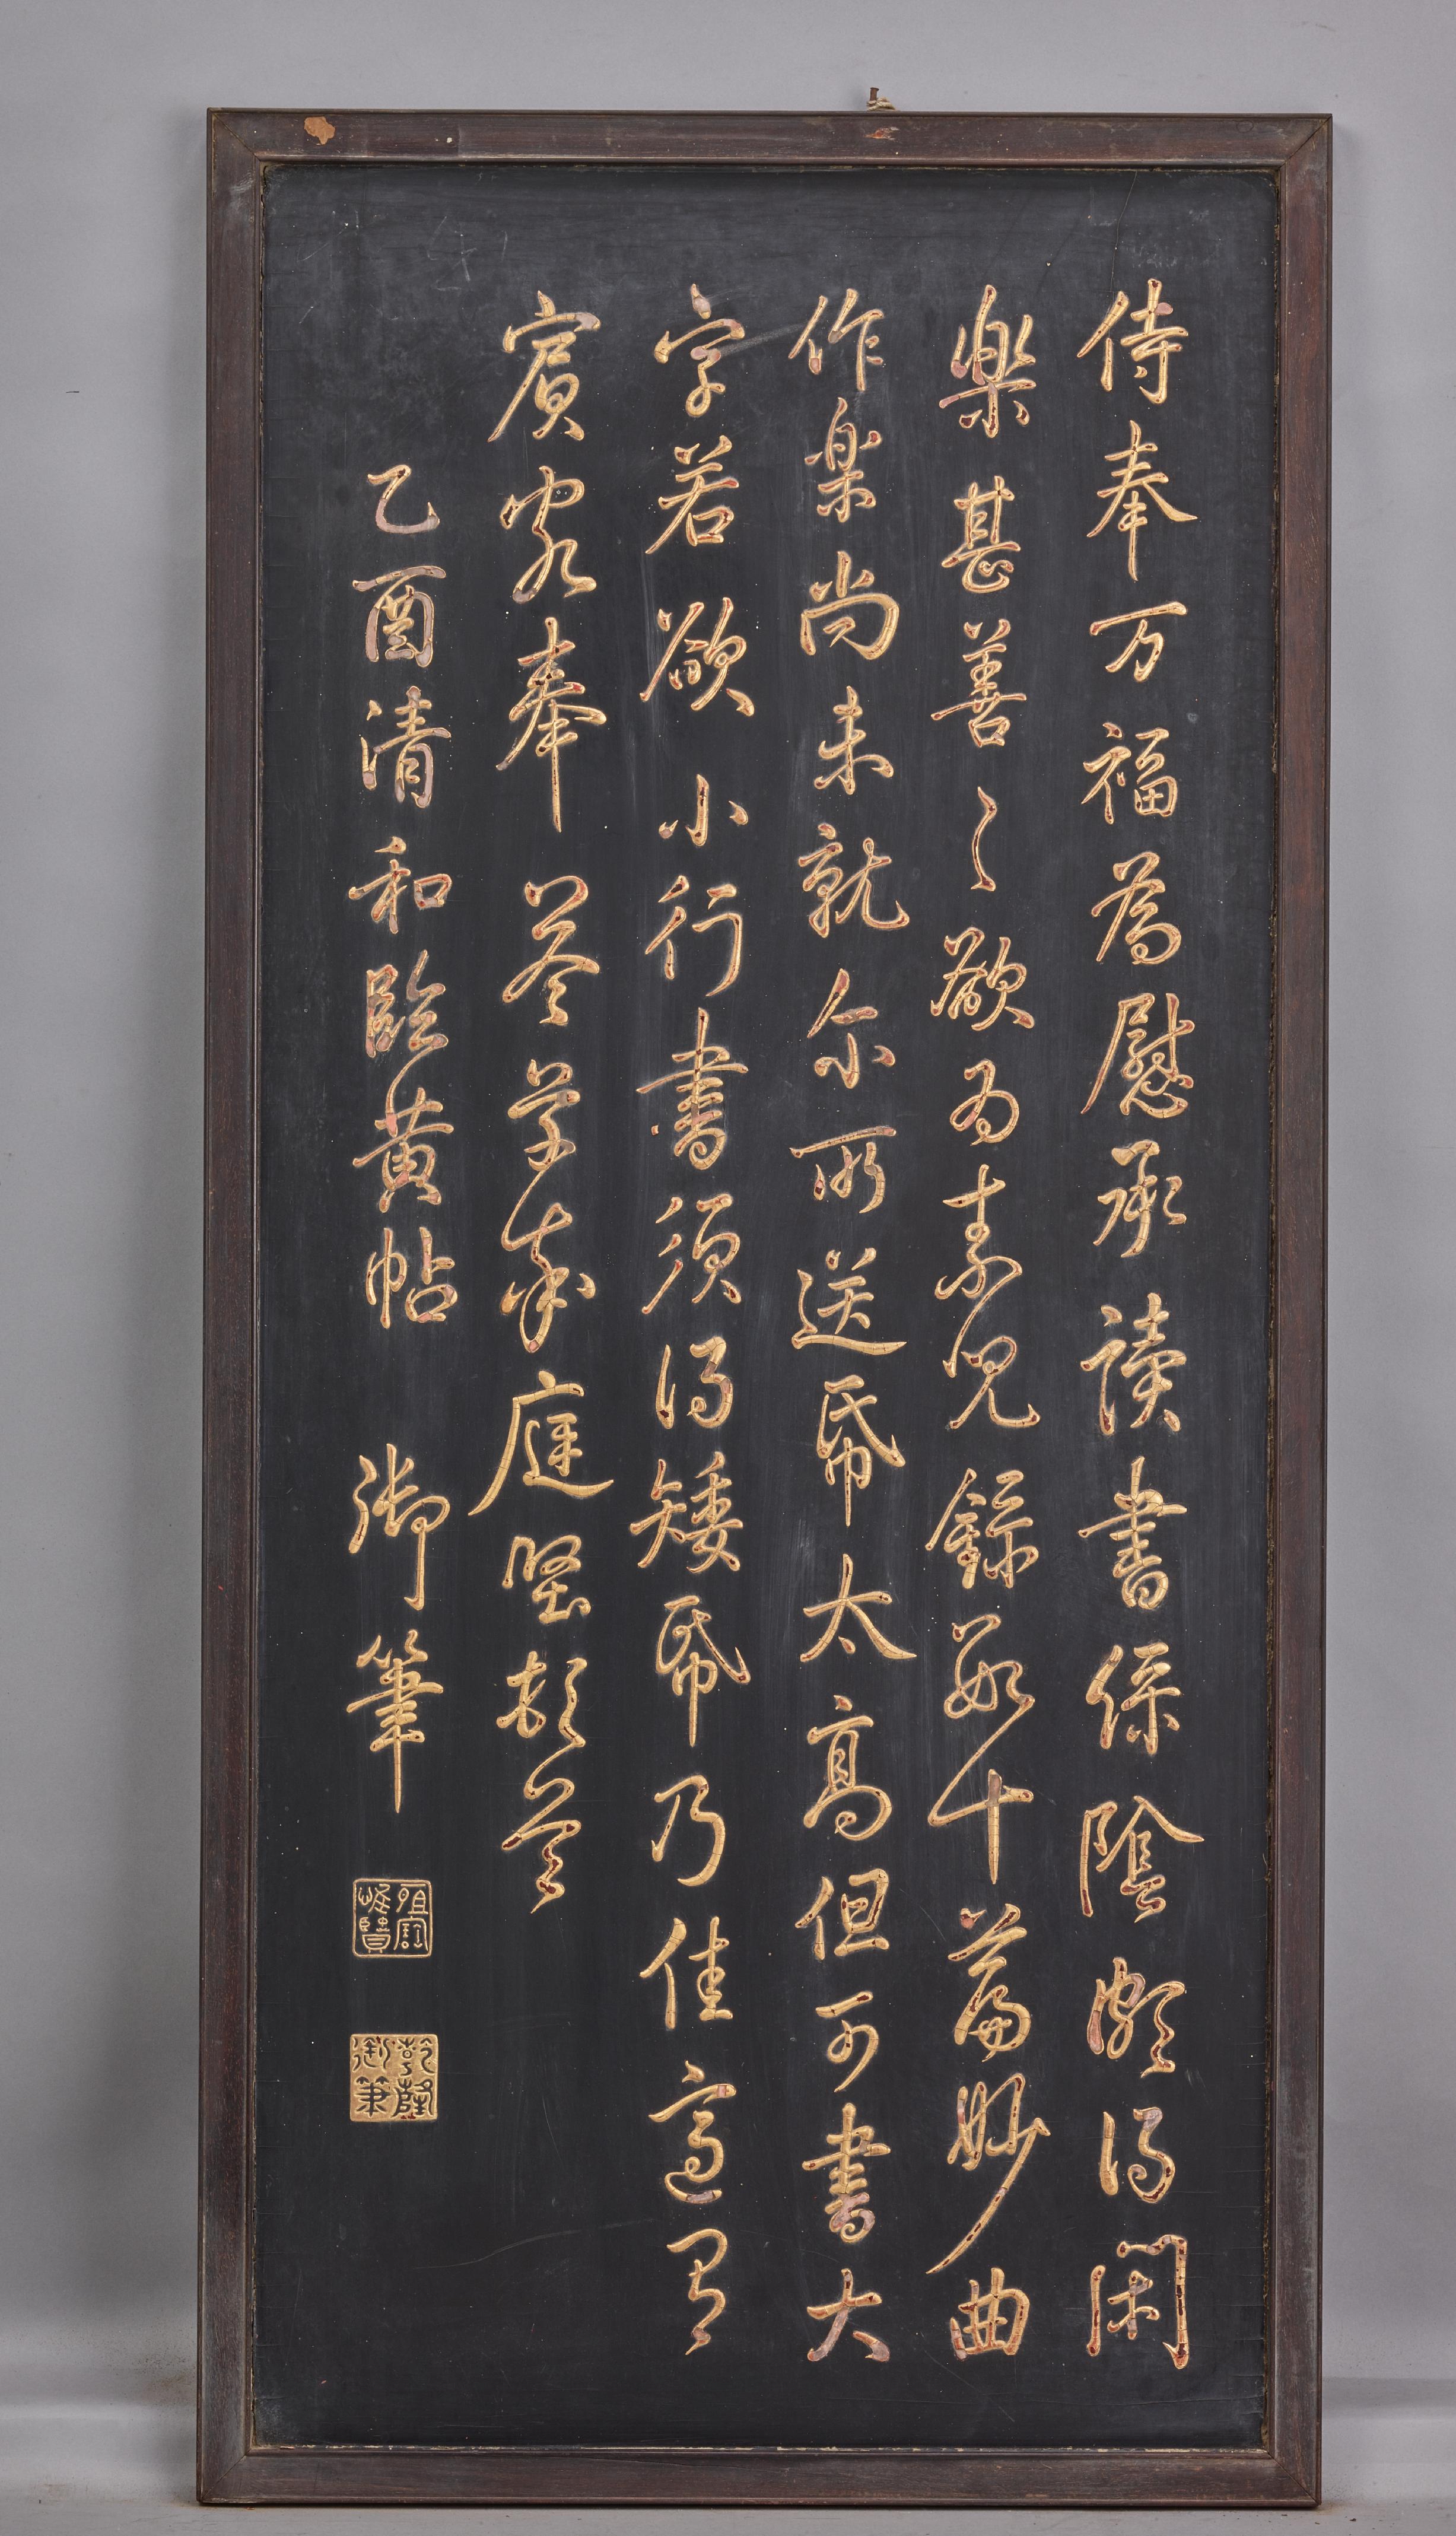 侍奉万福為慰承讀書綠陰頗得閑
樂甚善〻欲為素兒錄數十篇妙曲
作樂尚未就尔所送帋太高但可書大
字若欲小行書須得矮帋乃佳適有
賓客奉答草率庭堅頓首
乙酉清和臨黃帖 御筆
乾隆御筆